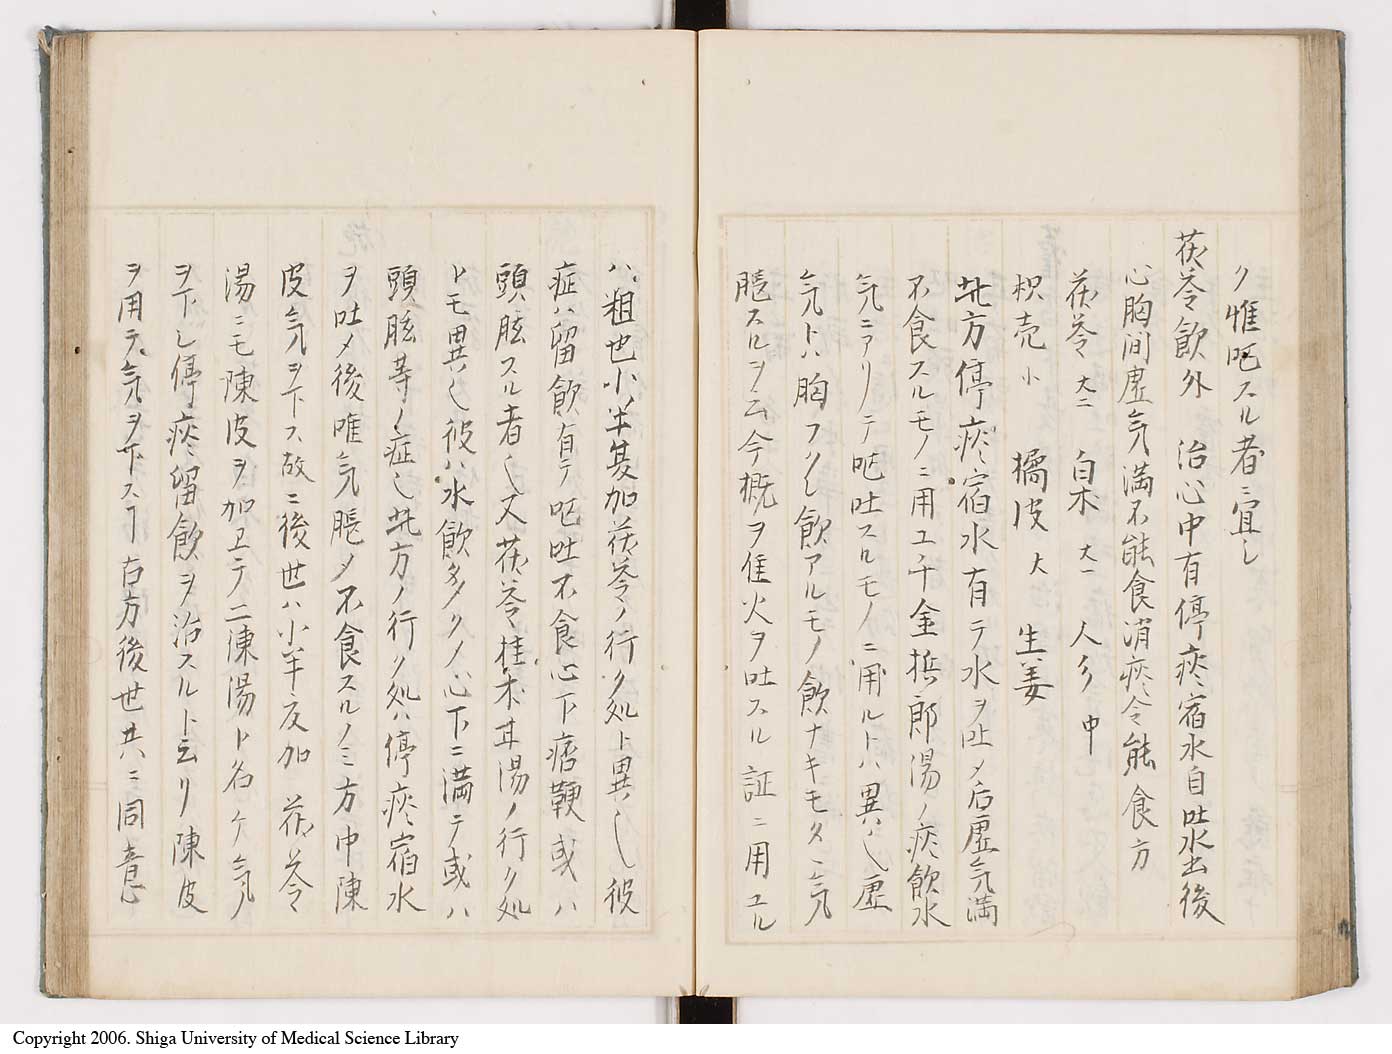 ク惟嘔スル者ニ宜シ
茯苓飲 外 治心中有停痰宿水自吐水出後
心胸間虚気満不能食消痰令能食方
茯苓 大二 白朮 大一 人参 中
枳売 小 橘皮 大 生姜
此方停痰宿水有テ水ヲ吐メ后虚気満
不食スルモノニ用ユ千金 郎湯ノ痰飲水
気ニアリテ嘔吐スルモノニ用ルトハ異也虚
気トハ胸フクレ飲アルモノ飲ナキモタヾ気
スルヲ云今概ヲ 火ヲ吐スル証ニ用ユル
ハ粗也小半夏加茯苓ノ行ク処ト異也彼
症ハ留飲有テ嘔吐不食心下痞鞕或ハ
頭眩スル者也又茯苓桂朮甘湯ノ行ク処
トモ異也彼ハ水飲多クノ心下ニ満テ或ハ
頭眩等ノ症也此方ノ行ク処ハ停痰宿水
ヲ吐メ後唯気 メ不食スルノミ方中陳
皮気ヲ下ス故ニ後世ハ小半反加茯苓
湯ニモ陳皮ヲ加ヱテ二陳湯ト名ケ気
ヲ下シ停痰留飲ヲ治スルト云リ陳皮
ヲ用テ気ヲ下スヿ古方後世共ニ同意
Copyright 2006. Shiga University of Medical Science Library